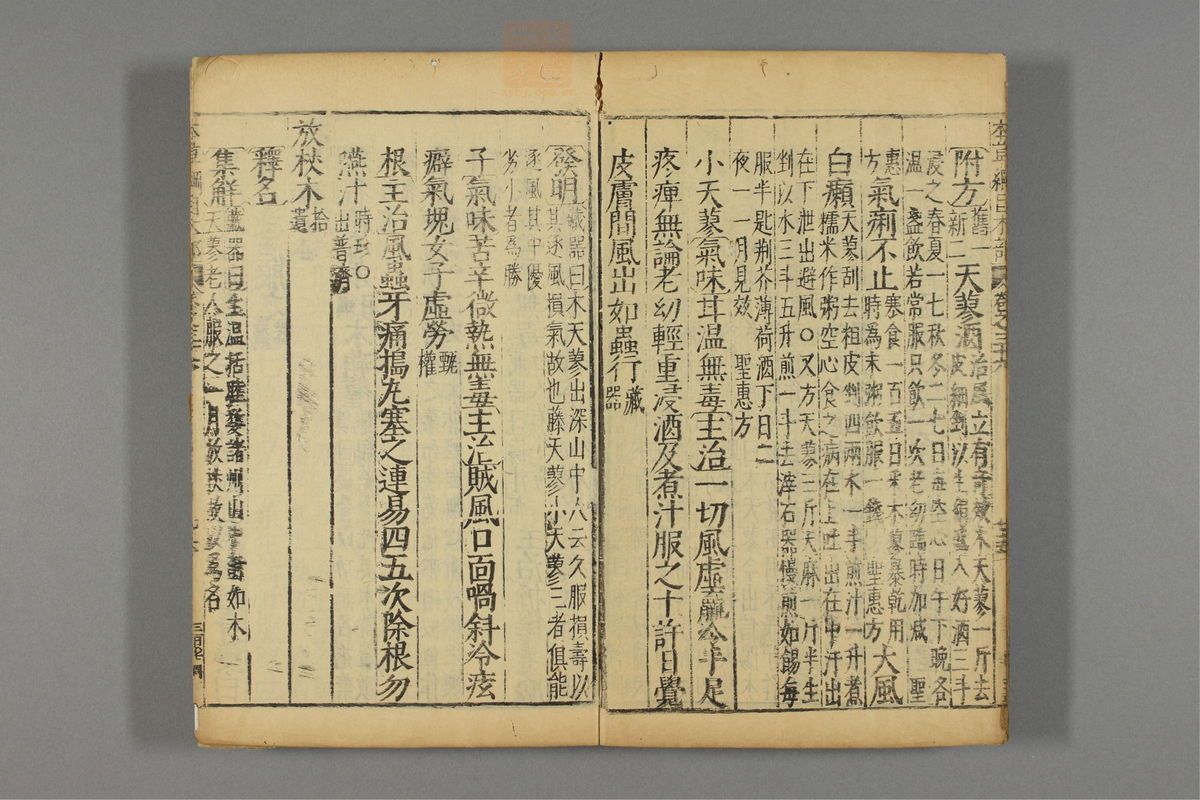 附方舊一新二天蓼酒治風立有奇效木天蓼一斤去皮細剉以生絹盛入好酒二斗
浸之春夏一七秋冬二七日每空心日午下晚各
溫一盞飲若常服只飲一次老幼臨時加減 聖
惠方氣痢不止寒食一百五日采木蓼暴乾用時爲末粥飲服一錢 聖惠方大風
白癩天蓼刮去粗皮剉四兩水一斗煎汁一升煮糯米作粥空心食之病在上吐出在中汗出
在下泄出避風○又方天蓼三斤天麻一斤半生
剉以水三斗五升煎一斗去滓石器慢煎如餳每
服半匙荆芥薄荷酒下日二
夜一一月見效 聖惠方
小天蓼氣味甘溫無毒主治一切風虛羸冷手足
疼痺無論老幼輕重浸酒及煮汁服之十許日覺
皮膚間風出如蟲行藏器
發明藏器曰木天蓼出深山中人云久服損壽以其逐風損氣故也藤天蓼小天蓼三者俱能
逐風其中優
劣小者爲勝
子氣味苦辛微熱無毒主治賊風口面喎斜冷痃
癖氣塊女子虛勞甄權
根主治風蟲牙痛搗丸塞之連易四五次除根勿
嚥汁時珍○出普濟
放杖木拾遺
釋名
集解藏器曰生溫括睦婺諸州山中樹如木天蓼老人服之一月放杖故以爲名